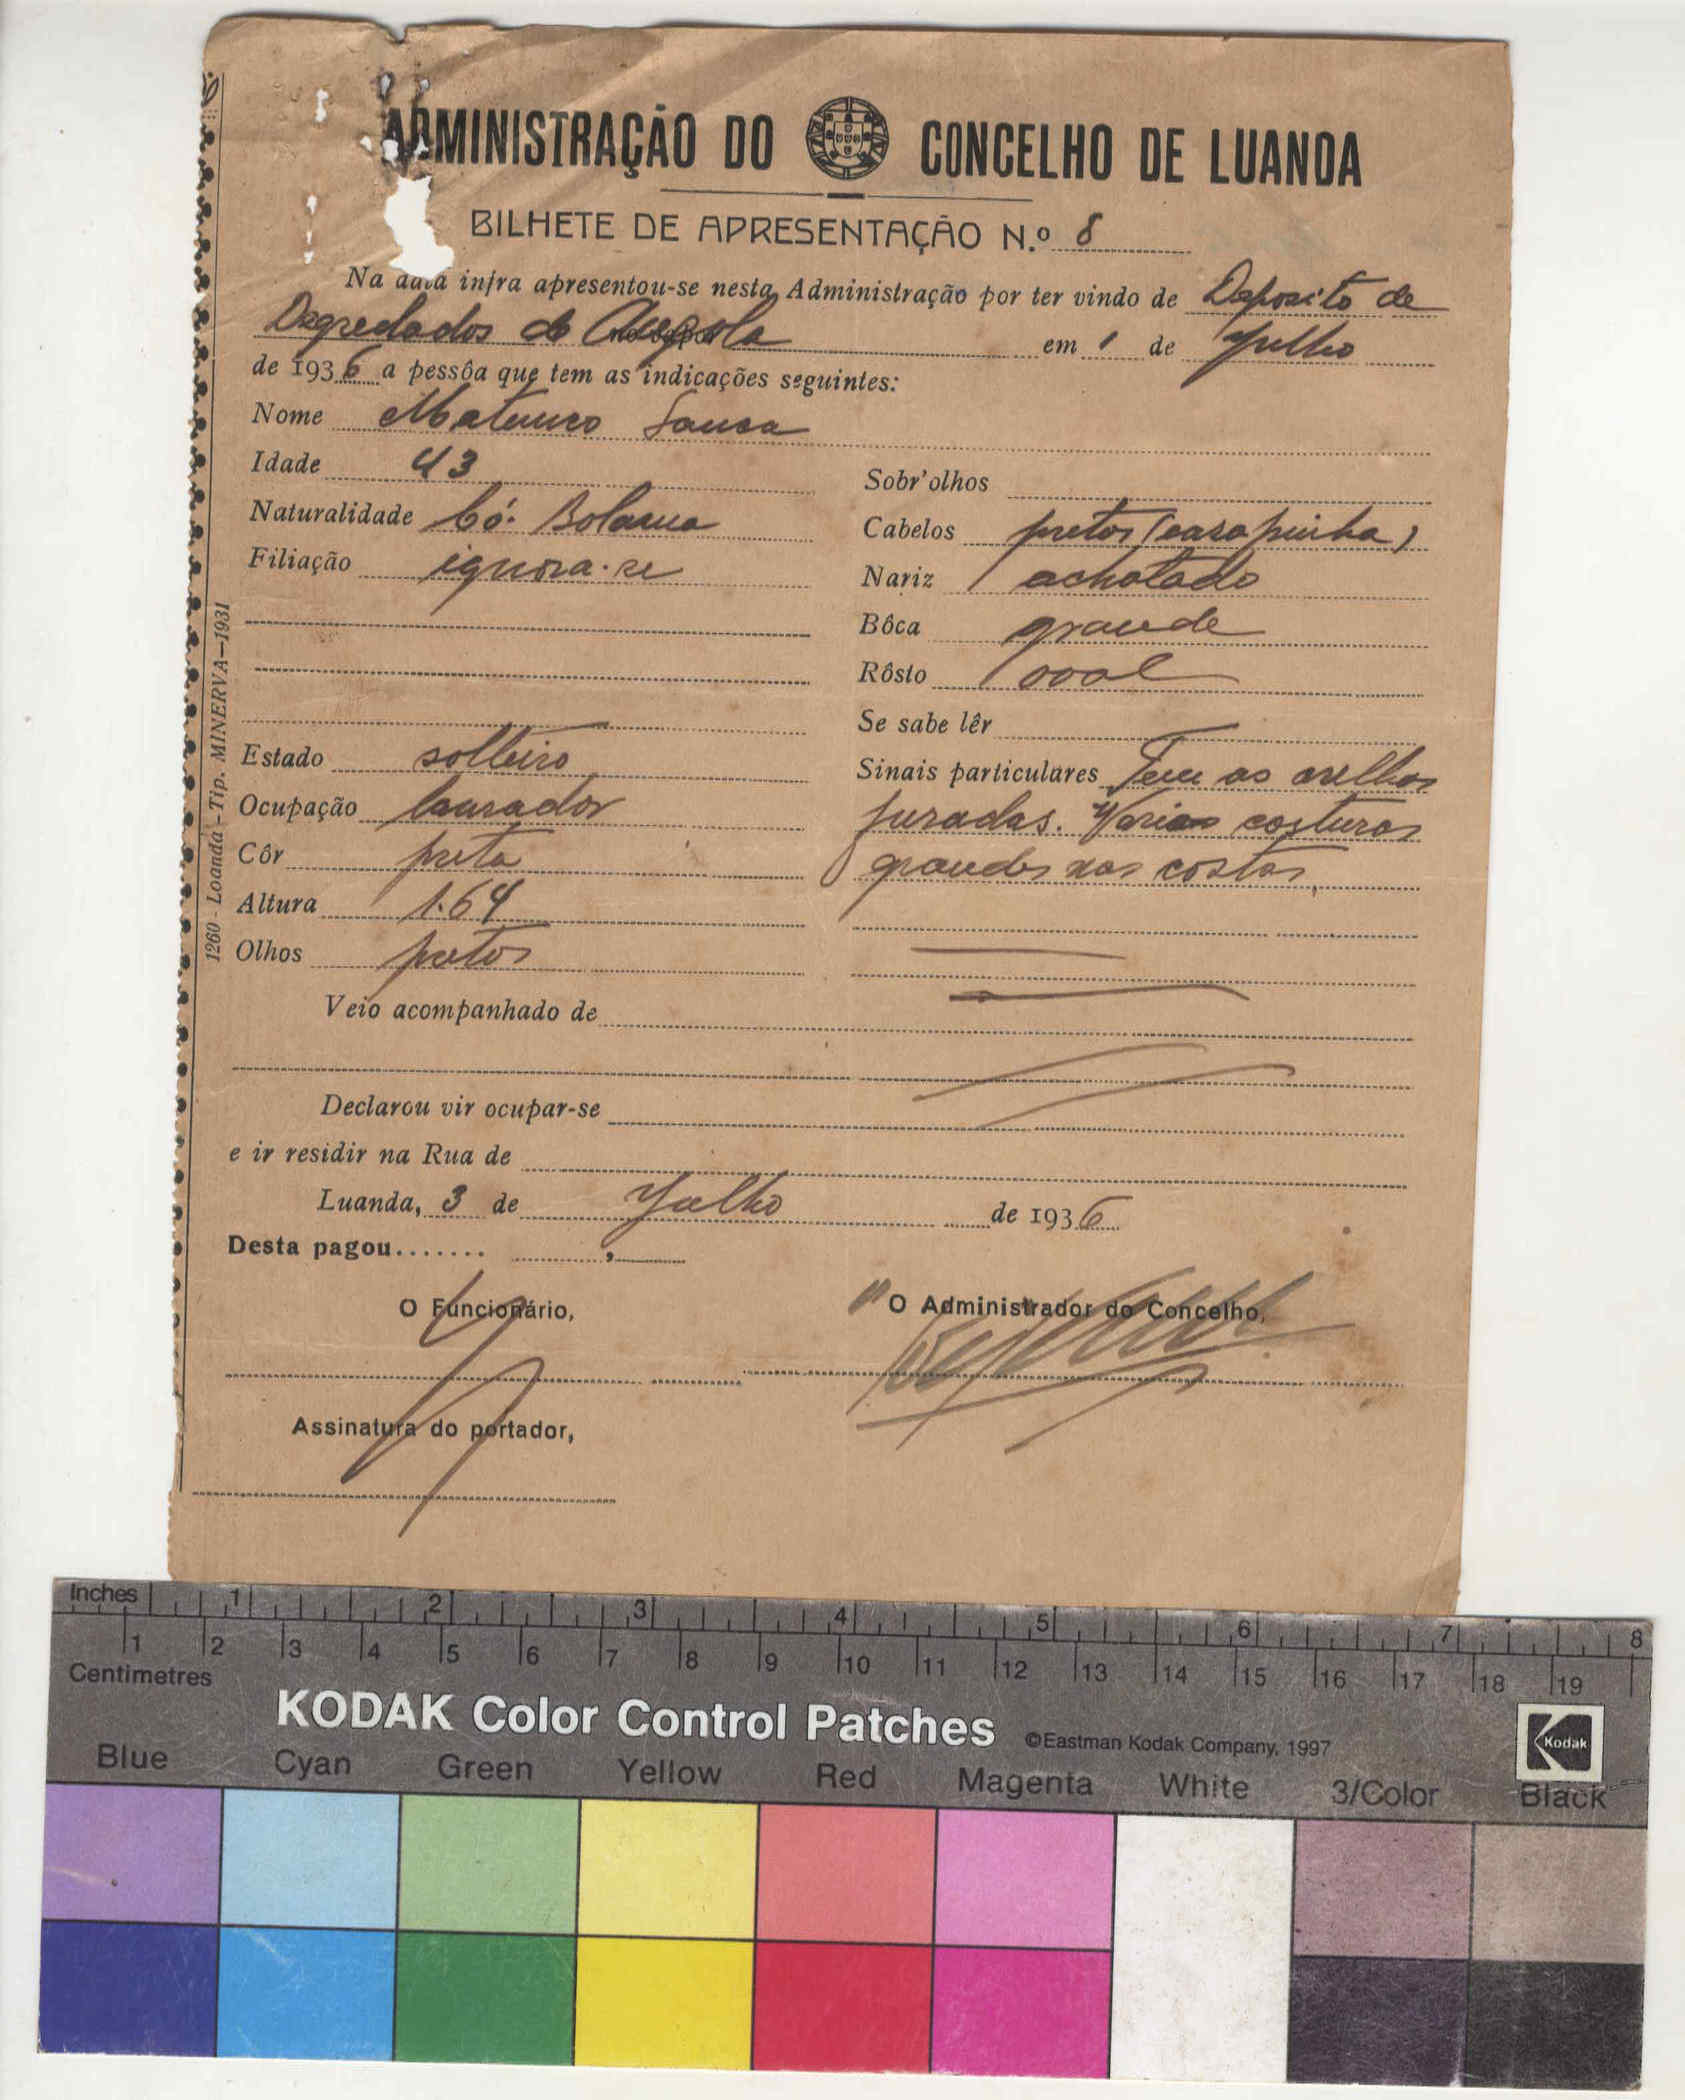 ADMINISTRAÇÃO DO CONCELHO DE LUANDA
BILHETE DE APRESENTAÇÃO N.º 8
Na data infra apresentou-se nesta Administração por ter vindo de Deposito de
Degredados de Angola em 1 de Julho
de 1936 a pessôa que tem as indicações seguintes:
Nome
Idade 43
Naturalidade Có. Bolama
Filiação ignora-se
Estado solteiro
Ocupação lavrador
Côr preta
Altura 1.64
Olhos pretos
Sobr'olhos
Cabelos pretos (carapinha)
Nariz achatado
Bôca grande
Rôsto oval
Se sabe lêr
Sinais particulares Tem as orelhas
furadas. Varias costuras
grandes nas costas
Veio acompanhado de
Declarou vir ocupar-se
e ir residir na Rua de
Luanda, 3 de Julho de 1936
Desta pagou....... ,
O Funcionário,
O Administrador do Concelho,
Assinatura do portador,
1260 - Loanda - Tip. MINERVA—1931
Inches 1 2 3 4 5 6 7 8
1 2 3 4 5 6 7 8 9 10 11 12 13 14 15 16 17 18 19
Centimetres
KODAK Color Control Patches ©Eastman Kodak Company, 1997 Kodak
Blue Cyan Green Yellow Red Magenta White 3/Color Black